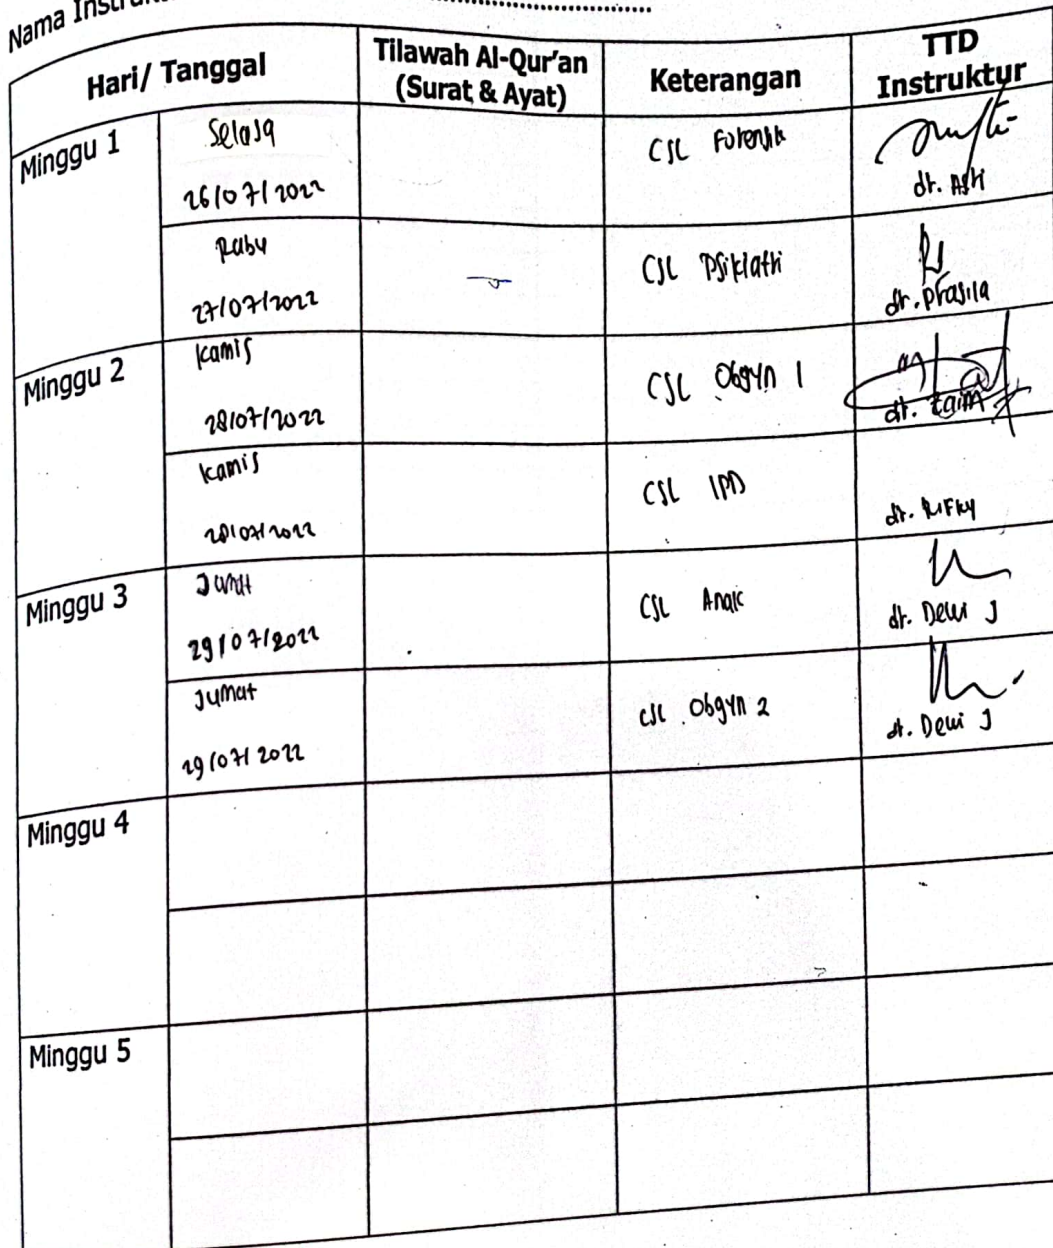 Nama
Hari/ Tanggal
Tilawah Al-Qur'an
(Surat & Ayat)
Keterangan
TTD
Instruktur
Minggu 1
Selasa
26/07/2022
CSL Forensik
dr. Asti
Rabu
27/07/2022
CSL Psikiatri
dr. Prasila
Minggu 2
Kamis
28/07/2022
CSL Obgyn 1
dr. Zaim
Kamis
28/07/2022
CSL IPD
dr. Rifky
Minggu 3
Jumat
29/07/2022
CSL Anak
dr. Dewi J
Jumat
29/07/2022
CSL Obgyn 2
dr. Dewi J
Minggu 4
Minggu 5